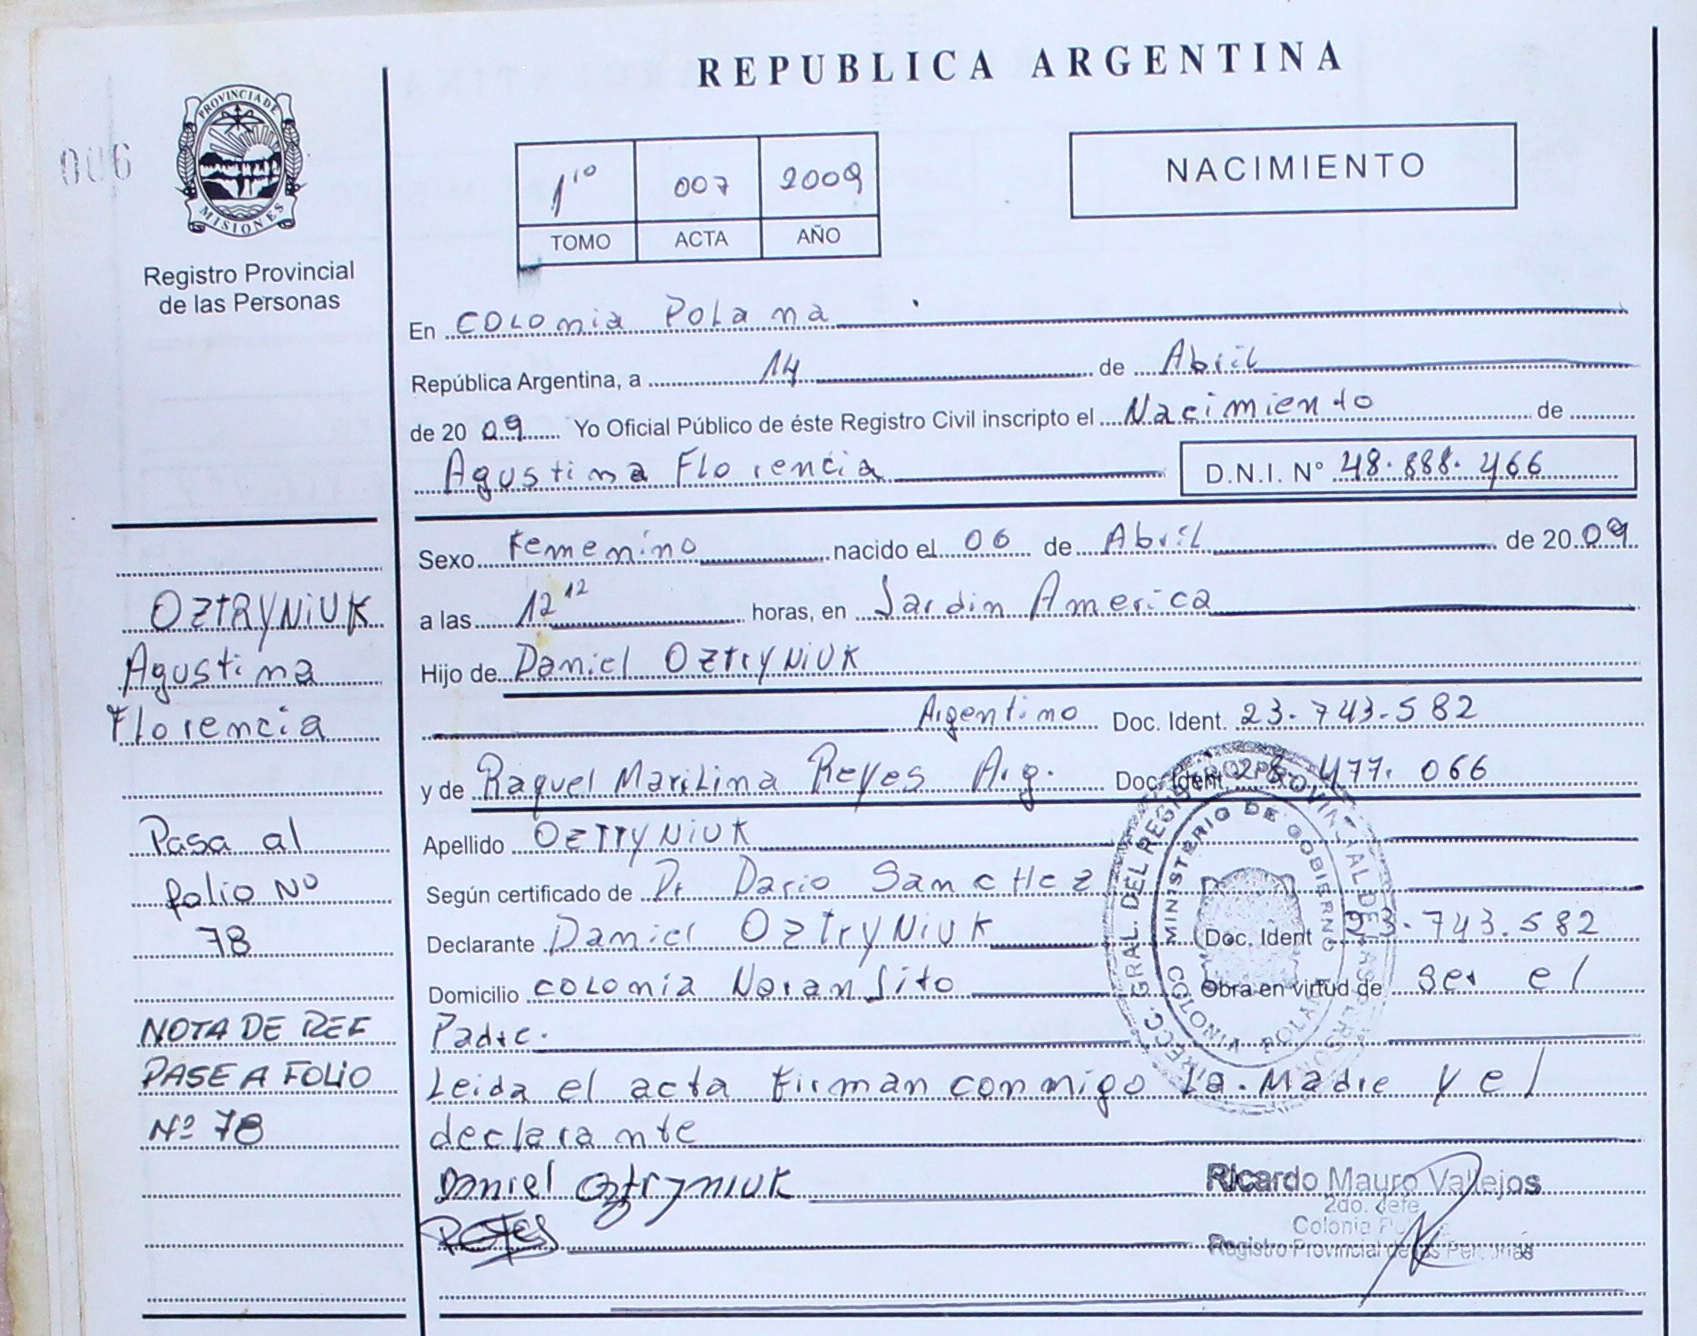 REPUBLICA ARGENTINA
006
PROVINCIA DE
MISIONES
Registro Provincial
de las Personas
1º 007 2009
TOMO ACTA AÑO
NACIMIENTO
En COLOnia PoLa na
República Argentina, a 14 de Abril
de 20 09 Yo Oficial Público de éste Registro Civil inscripto el Nacimiento de
Agustina Florencia D.N.I. Nº 48.888.466
Sexo Femenino nacido el 06 de Abril de 20 09
a las 12 12 horas, en Jardin America
Hijo de Daniel OZtryNiUK
Argentino Doc. Ident. 23-743-582
y de Raquel Marilina Reyes Arg. Doc. Ident 28.477.066
Apellido OZTryNiUK
Según certificado de Dr Dario SancHez
Declarante Daniel OztryNiUK Doc. Ident 23.743.582
Domicilio coLonia Ñaran Jito Obra en virtud de ser el
Padre.
Leida el acta Firman conmigo La Madre y el
declarante
Daniel Oztryniuk
Reyes
Ricardo Mauro Vallejos
2do. Jefe
Colonia
Registro Provincial de las Personas
OZTRYNIUK
Agustina
Florencia
Pasa al
folio Nº
78
NOTA DE REF
PASE A FOLIO
Nº 78
MINISTERIO DE GOBIERNO